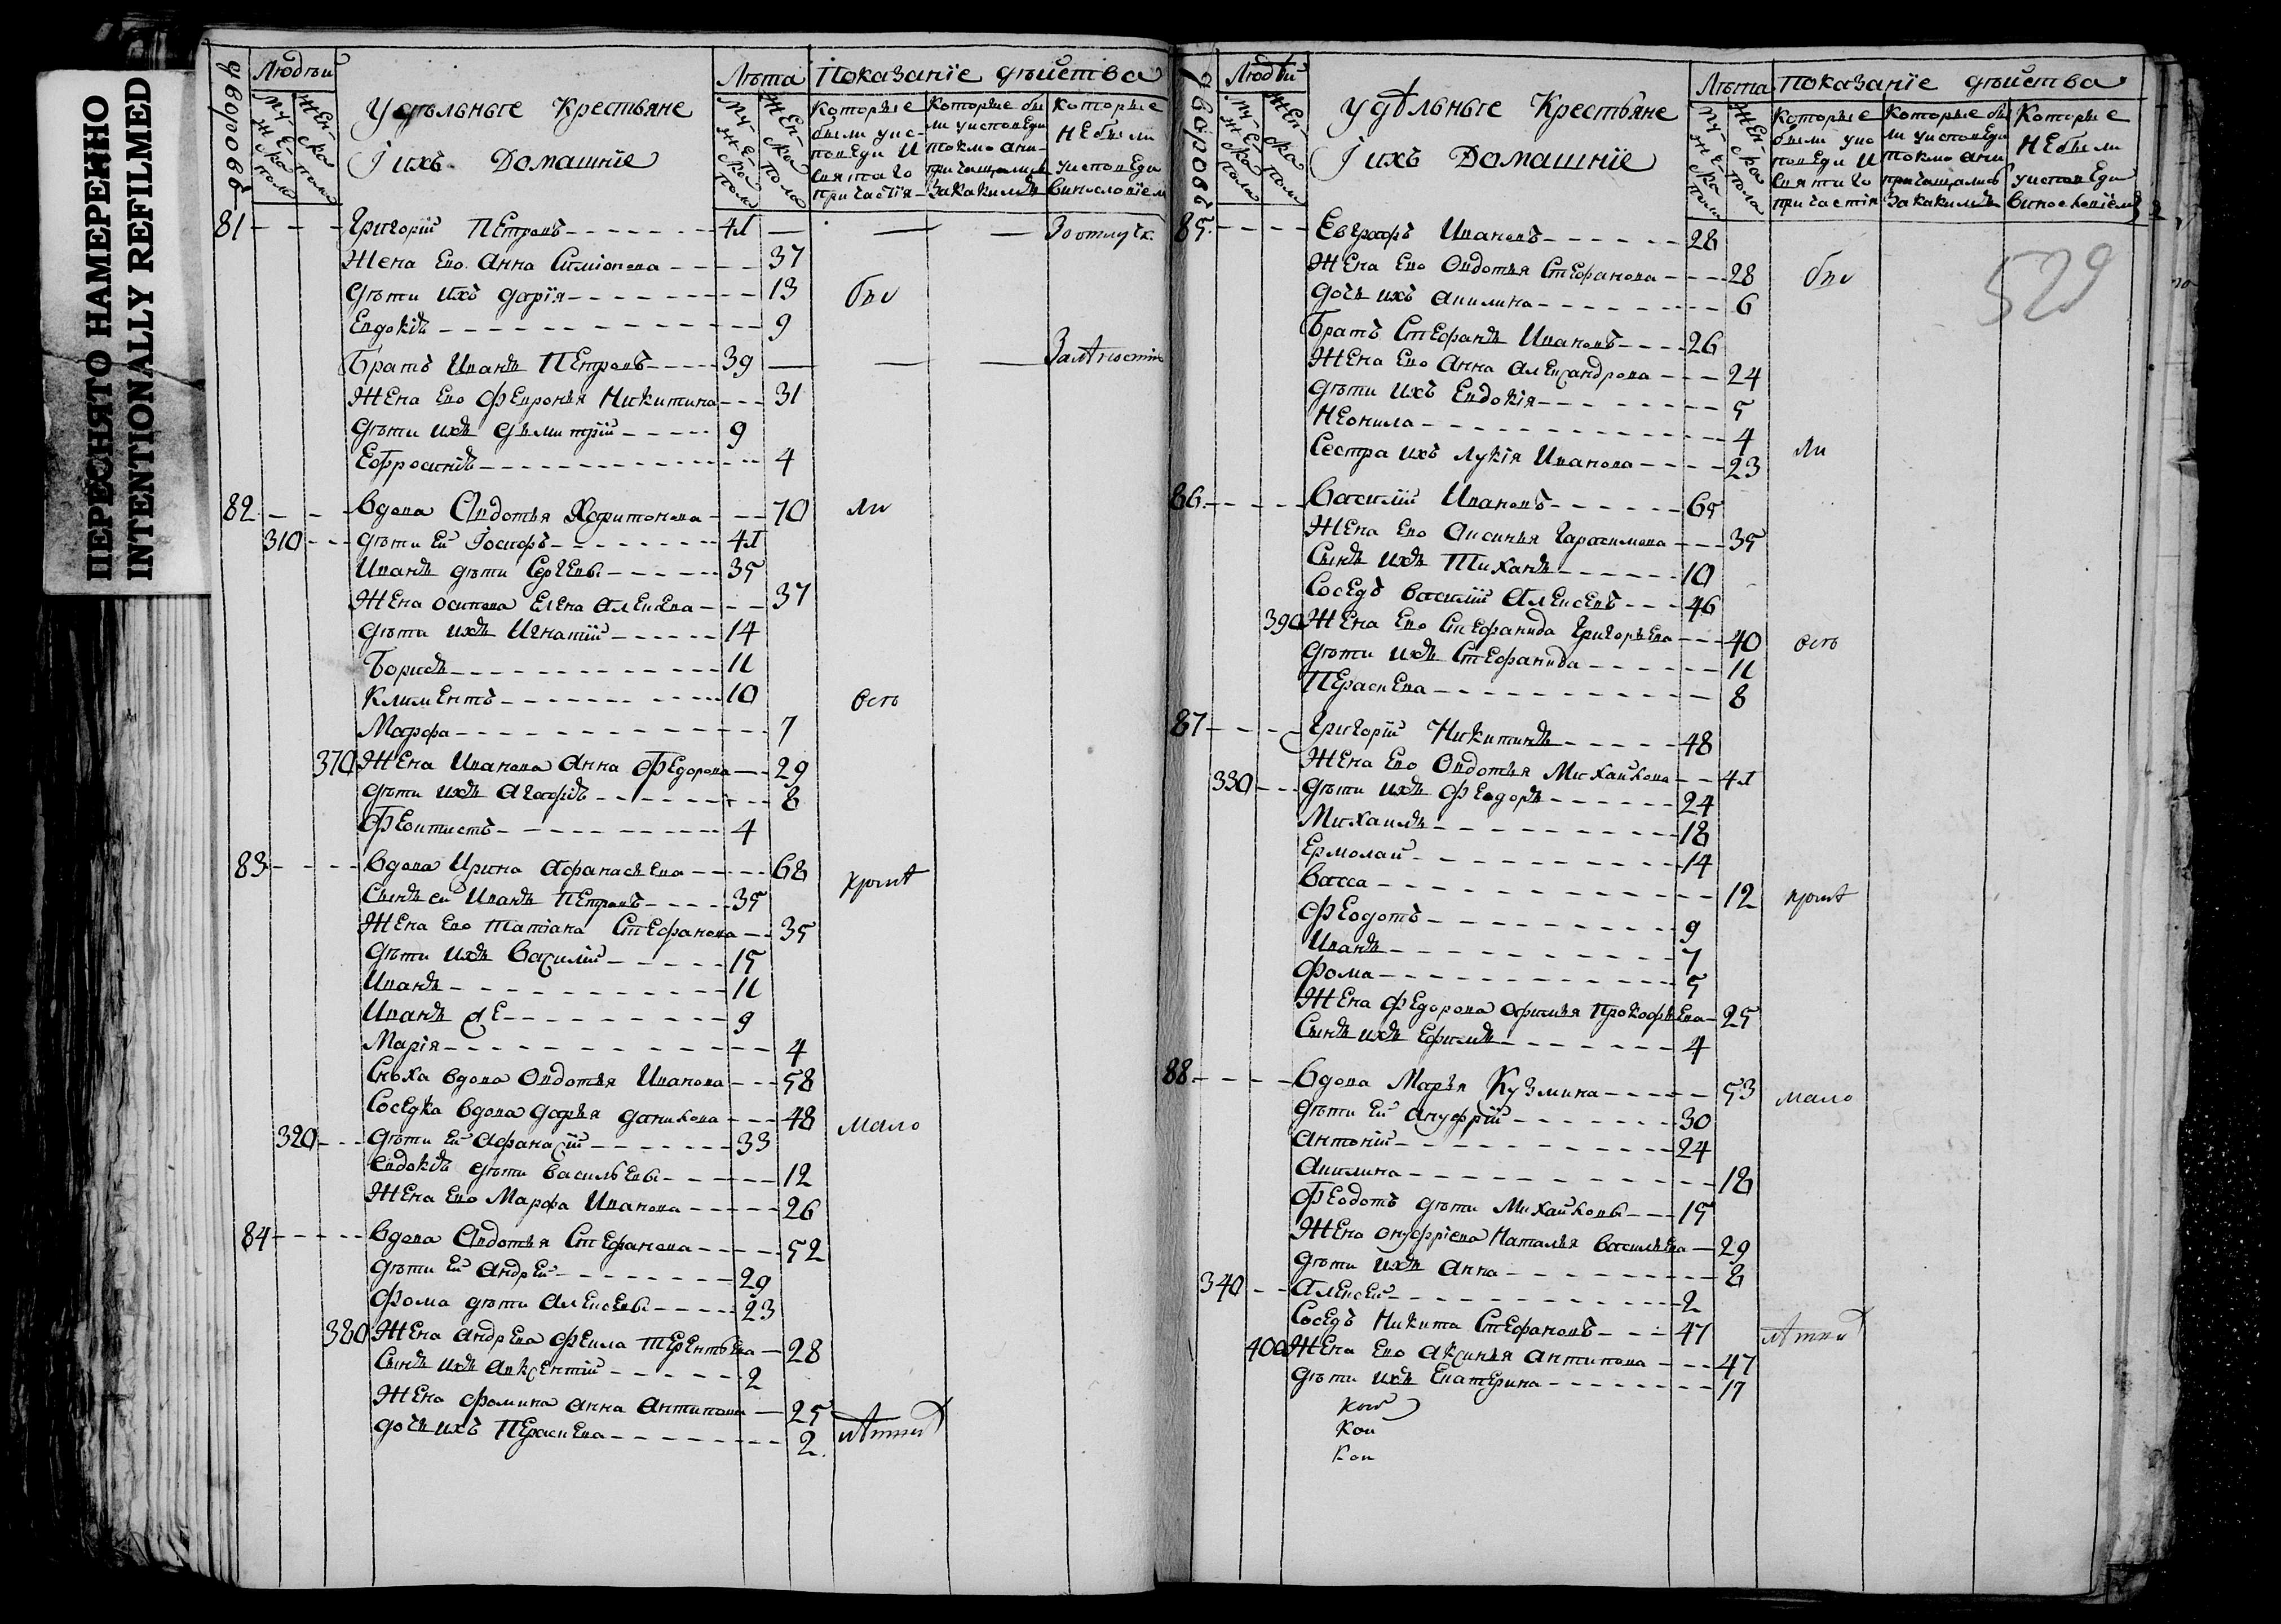 ПЕРЕСНЯТО НАМЕРЕННО
INTENTIONALLY REFILMED
дворовъ
Людѣй
Мужеска пола
Женска пола
Удѣльныe Крестьяне
Iихъ Домашнiе
Лѣта
Мужеска пола
Женска пола
Показанiе дѣйства
Которые были уисповеди и святаго причастiя
Которые были уисповеди токмо анипричащались закакимъ
Которые Небыли уисповеди
81 Григорiй Петровъ 41
Жена ево Анна Симiонова 37
Дѣти ихъ Дарiя 13 бы
Евдокiѣ 9
Братъ Иванъ Петровъ 39
Жена ево Февронья Никитина 31
Дѣти ихъ Дьмитрiй 9
Ефросинiѣ 4
82 Вдова Авдотья Харитонова 70 ли
310 Дѣти ей Iосифъ 41
Иванъ дѣти Сергевы 35
Жена Осипова Елена Алексева 37
Дѣти ихъ Игнатiй 14
Борисъ 11
Климентъ 10 всѣ
Марфа 7
370 Жена Иванова Анна Федорова 29
Дѣти ихъ Агафiѣ 8
Феоктистъ 4
83 Вдова Ирина Афанасьева 68 кромѣ
Сынъ ей Иванъ Петровъ 35
Жена ево Татiана Стефанова 35
Дѣти ихъ Василiй 15
Иванъ 11
Иванъ же 9
Марiя 4
Сноха вдова Овдотья Иванова 58
Соседка вдова Дарья Данилова 48 мало
320 Дѣти ей Афанасiй 33
Евдокiѣ дѣти Васильевы 12
Жена ево Марфа Иванова 26
84 Вдова Авдотья Стефанова 52
Дѣти ей Андрей 29
Фома дѣти Алексевы 23
380 Жена Андрева Фекла Терентьева 28
Сынъ ихъ Авксентiй 2
Жена Фомина Анна Антипова 25
Дочь ихъ Пераскева 2 лѣтних
дворовъ
Людѣй
Мужеска пола
Женска пола
Удѣльные Крестьяне
Iихъ Домашнiе
Лѣта
Мужеска пола
Женска пола
Показанiе дѣйства
Которые были уисповеди и святаго причастiя
Которые были уисповеди токмо анипричащались закакимъ
Которые Небыли уисповеди
529
85 Евграфъ Ивановъ 28
Жена ево Овдотья Стефанова 28 бы
Дочь ихъ Акилина 6
Братъ Стефанъ Ивановъ 26
Жена ево Анна Александрова 24
Дѣти ихъ Евдокiя 5
Неонила 4
Сестра ихъ Лукiя Иванова 23 ли
86 Василiй Ивановъ 65
Жена ево Аксинья Гарасимова 35
Сынъ ихъ Тиханъ 10
Соседъ Василiй Алексевъ 46
390 Жена ево Стефанида Григорьева 40 всѣ
Дѣти ихъ Стефанида 11
Пераскева 8
87 Григорiй Никитинъ 48
Жена ево Овдотья Михайлова 41
330 Дѣти ихъ Феодоръ 24
Михаилъ 18
Ермолай 14
Васса 12 кромѣ
Феодотъ 9
Иванъ 7
Фома 5
Жена Федорова Офимья Прокофьева 25
Сынъ ихъ Ефимъ 4
88 Вдова Марья Кузмина 53 мало
Дѣти ей Ануфрiй 30
Антонiй 24
Акилина 18
Феодотъ дѣти Михайловы 15
Жена Онуфрiева Наталья Васильева 29
Дѣти ихъ Анна 8
340 Алексей 2
Соседъ Никита Стефановъ 47 лѣтних
400 Жена ево Аксинья Антипова 47
Дѣти ихъ Екатерина 17